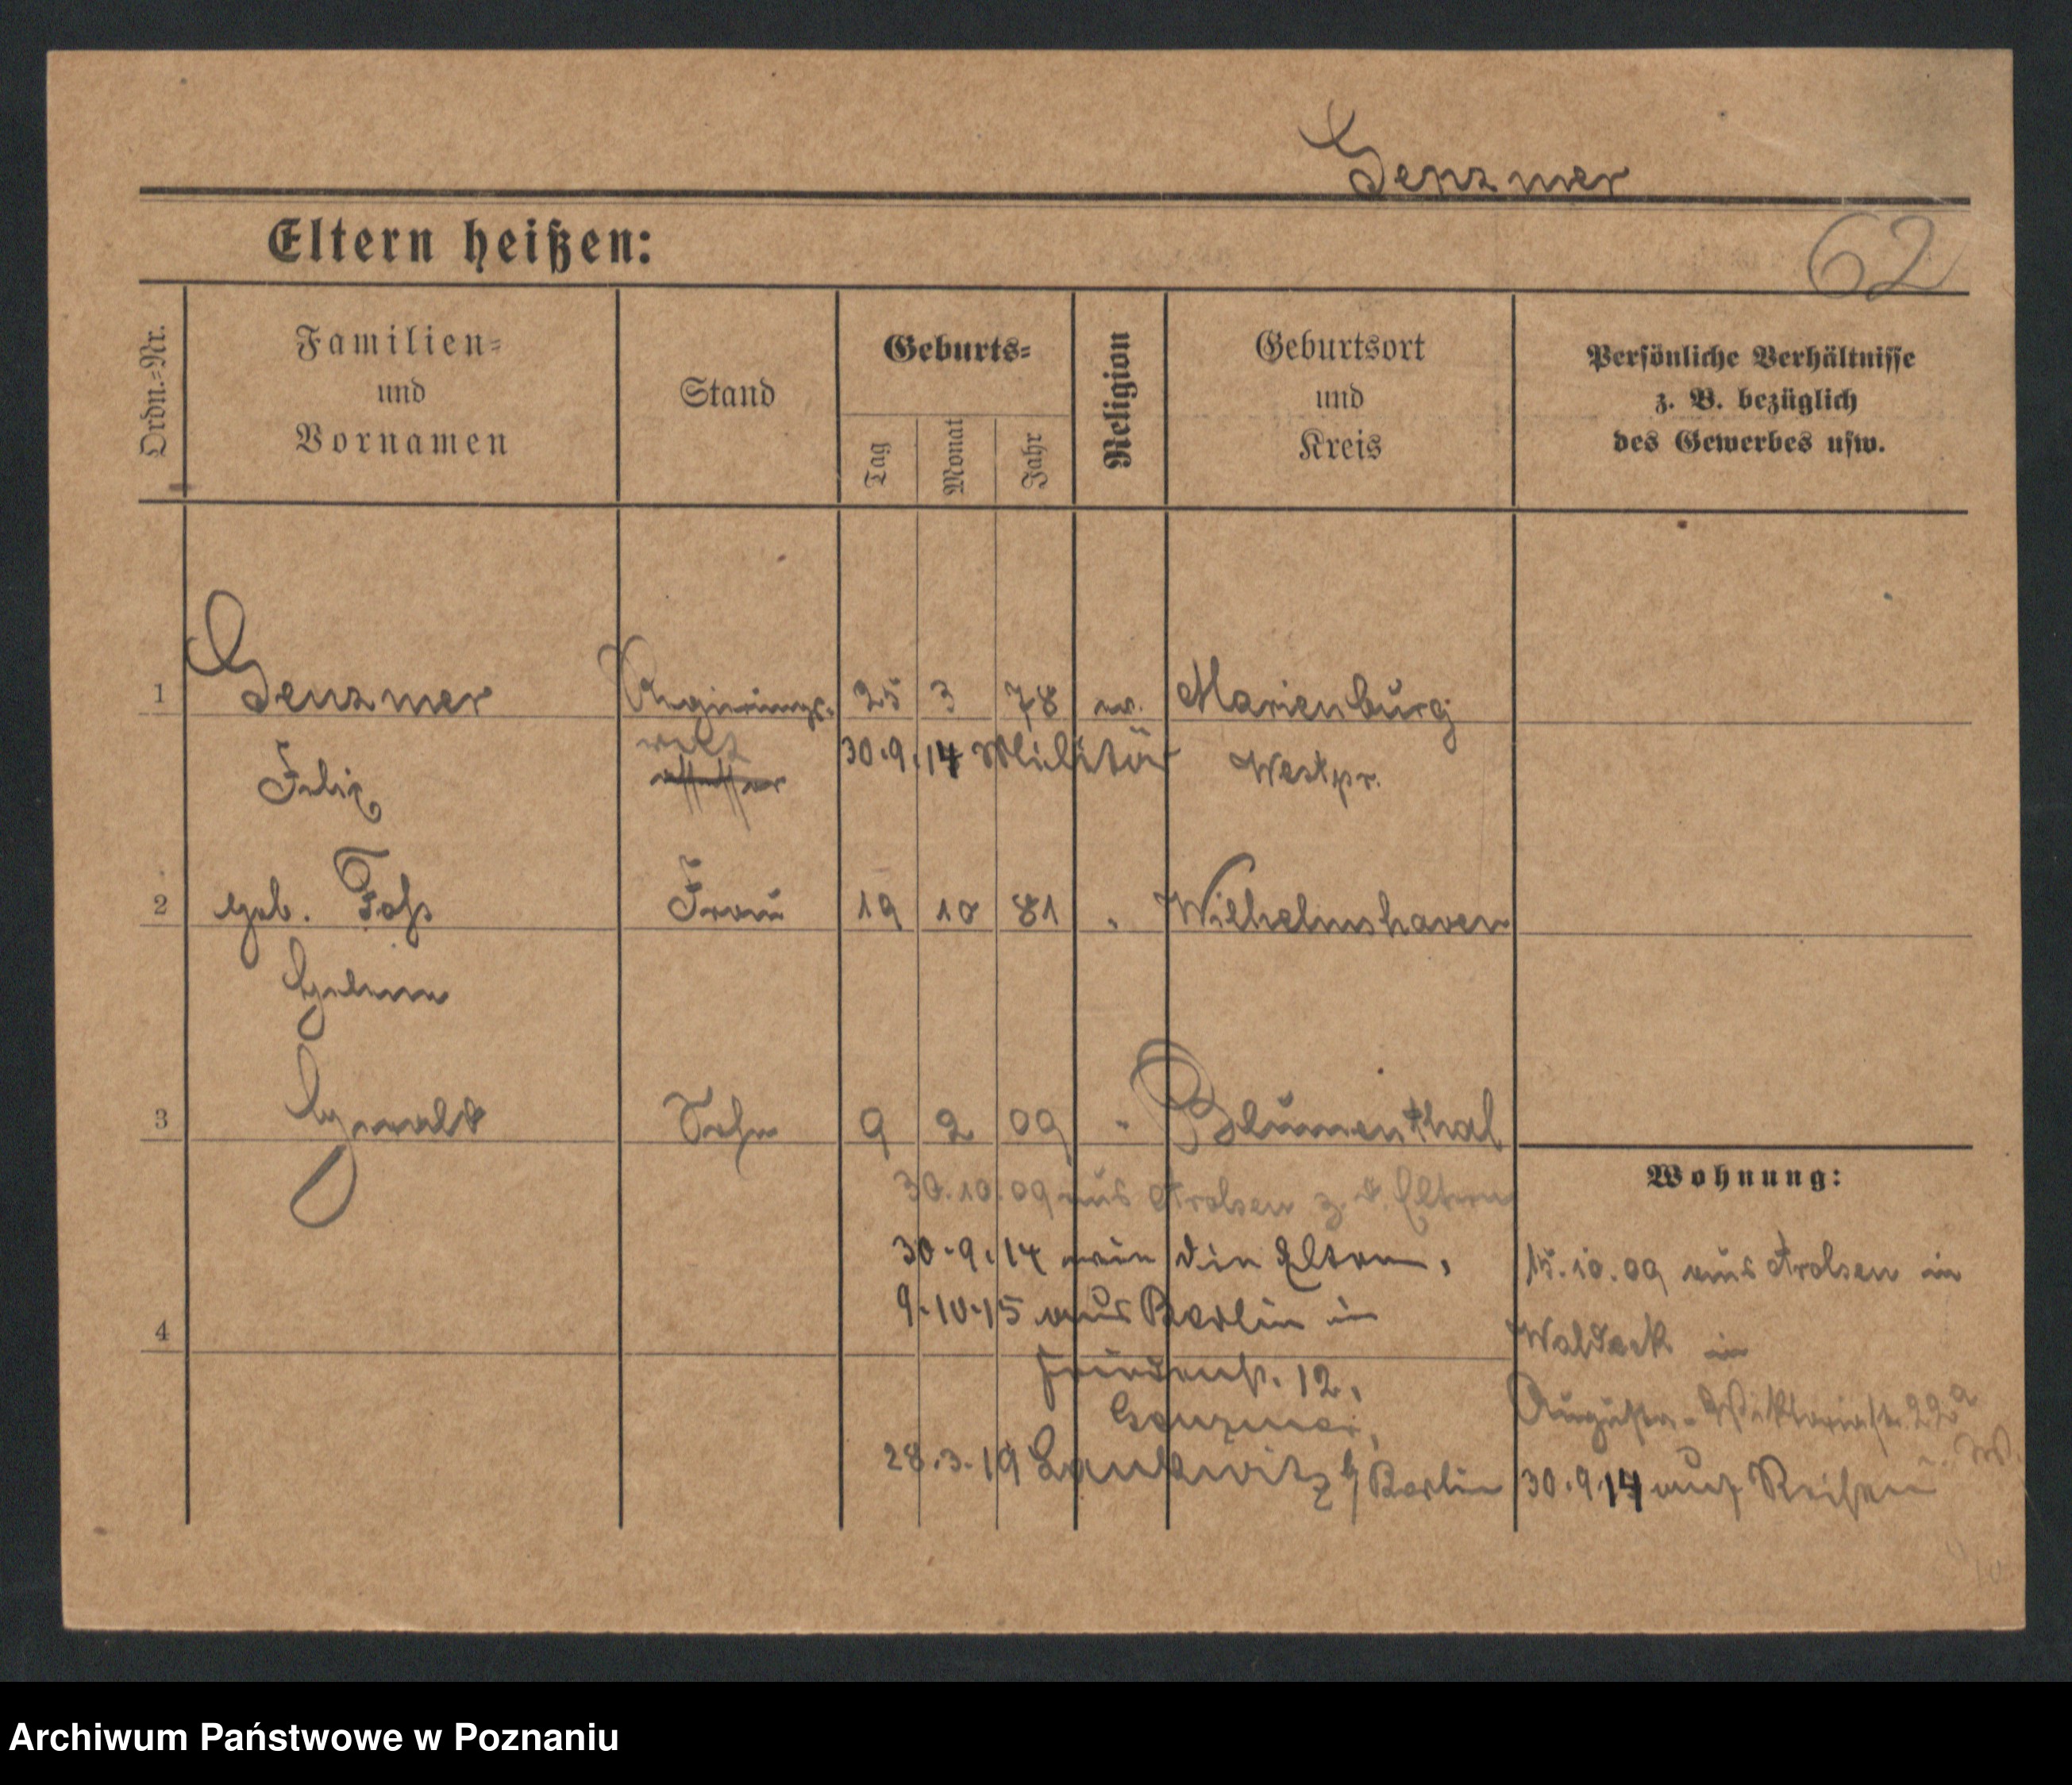 Genzmer
Eltern heißen:
62
Ordn.=Nr.
Familien=
und
Vornamen
Stand
Geburts=
Tag
Monat
Jahr
Religion
Geburtsort
und
Kreis
Persönliche Verhältnisse
z. B. bezüglich
des Gewerbes usw.
1 Genzmer Regierungs- 25 3 78 ev. Marienburg
rat 30.9.14 Militär Westpr.
assessor
Felix
2 geb. Frau 19 10 81 " Wilhelmshaven
Helene
3 Sohn 9 2 09 " Blumenthal
Wohnung:
30.10.09 aus Arolsen z. d. Eltern
30.9.14 wie die Eltern,
9.10.15 aus Berlin in
4
12,
Genzmer,
28.3.19 Lankwitz b/ Berlin
15.10.09 aus Arolsen in
Waldeck in
Augusta-Viktoriastr. 22a
30.9.14 auf Reisen
Archiwum Państwowe w Poznaniu